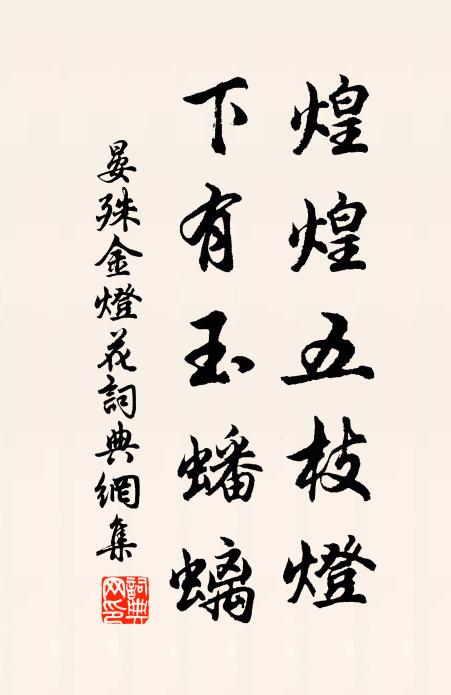 煌煌五枝燈
下有玉蟠螭
晏殊金燈花詞典網集
詞典網印